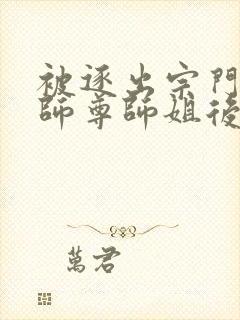 被逐出宗門
師尊師姐後
萬君